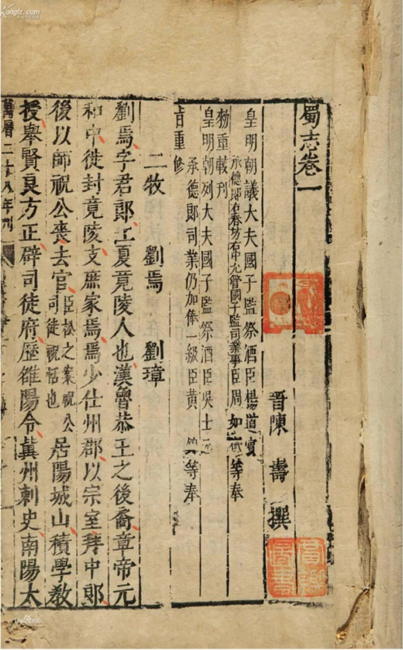 蜀志卷一
晉 陳 壽 撰
皇明朝議大夫國子監祭酒臣楊道賓
承德郎右春坊右中允管國子監司業事臣周如 等奉
勑重較刊
皇明朝列大夫國子監祭酒臣吳士
承德郎司業仍加俸一級臣黃 等奉
旨重修
二牧 劉焉 劉璋
劉焉字君郎江夏竟陵人也漢魯恭王之後裔章帝元
和中徙封竟陵支庶家焉焉少仕州郡以宗室拜中郎
後以師祝公喪去官臣松之案祝公司徒祝恬也居陽城山積學教
授舉賢良方正辟司徒府歷雒陽令冀州刺史南陽太
萬曆二十八年刊